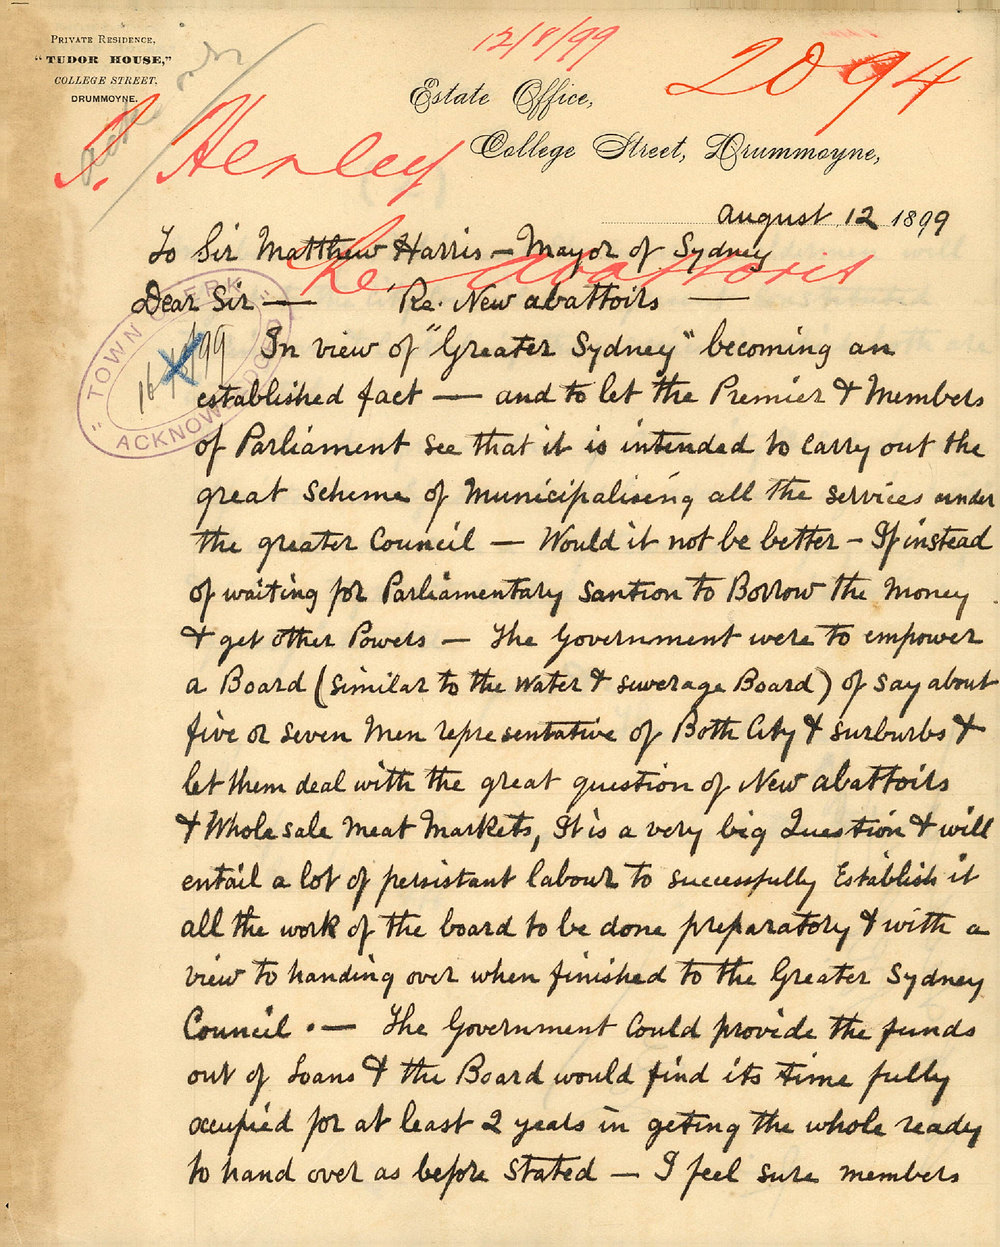 PRIVATE RESIDENCE,
"TUDOR HOUSE,"
COLLEGE STREET,
DRUMMOYNE.
12/8/99
2094
Estate Office,
College Street, Drummoyne,
T. Henley
august 12 1899
To Sir Matthew Harris — Mayor of Sydney
Re abattoirs
Dear Sir — Re. New abattoirs —
"TOWN CLERK"
16/8/99
ACKNOWLEDGED
In view of "Greater Sydney" becoming an
established fact — and to let the Premier & Members
of Parliament see that it is intended to carry out the
great scheme of Municipalising all the services under
the greater Council — Would it not be better – If instead
of waiting for Parliamentary Santion to Borrow the Money
& get other Powers — The Government were to empower
a Board (similar to the Water & suwerage Board) of say about
five or seven Men representative of Both City & surburbs &
let them deal with the great question of New abattoirs
& Whole sale Meat Markets, It is a very big Question & will
entail a lot of persistant labour to successfully Establish it
all the work of the board to be done preparatory & with a
view to handing over when finished to the Greater Sydney
Council. — The Government Could provide the funds
out of Loans & the Board would find its time fully
occupied for at least 2 years in geting the whole ready
to hand over as before stated — I feel sure members